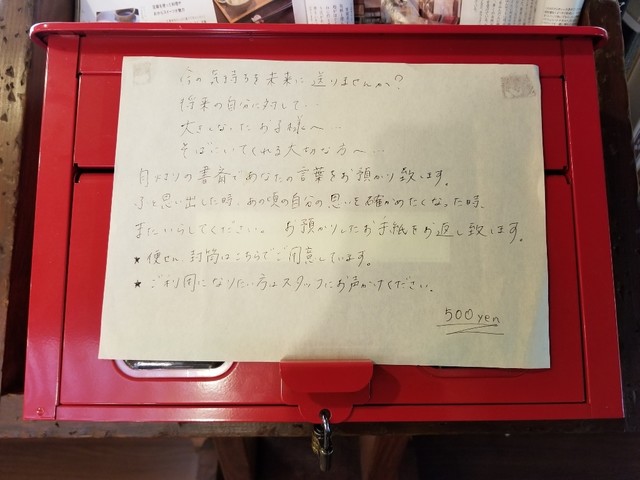 今の気持ちを未来に送りませんか?
将来の自分に対して…
大きくなったお子様へ…
そばにいてくれる大切な方へ…
の書斎であなたの言葉をお預かり致します。
ふと思い出した時、あの頃の自分の思いを確かめたくなった時、
またいらしてください。 お預かりしたお手紙をお返し致します。
★ 便せん、封筒はこちらでご用意しています。
★ ご利用になりたい方はスタッフにお声がけください。
500yen